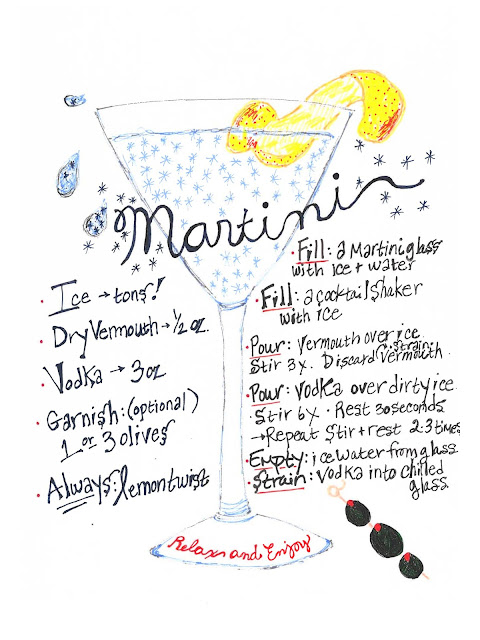 Martini
• Ice → tons!
• Dry Vermouth → 1/2 oz.
• Vodka → 3 oz
• Garnish: (optional)
1 or 3 olives
• Always: lemon twist
• Fill: a Martini glass
with ice + water
• Fill: a cocktail shaker
with ice
• Pour: Vermouth over ice
Stir 3x. • Strain •
Discard Vermouth.
• Pour: Vodka over dirty ice
• Stir 6x • Rest 30 seconds
→ Repeat Stir + rest 2-3 times
• Empty: ice water from glass
• Strain: Vodka into chilled
glass
Relax and Enjoy